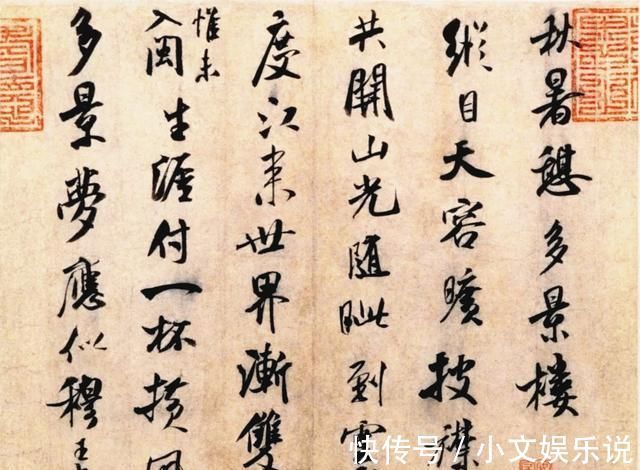 秋暑憩多景樓
縱目天容曠披襟
共開山光隨眦到雲
度江來世界漸雙
惟未
入閩生涯付一杯橫風
多景夢應似穆王
快传号/小文娱乐说